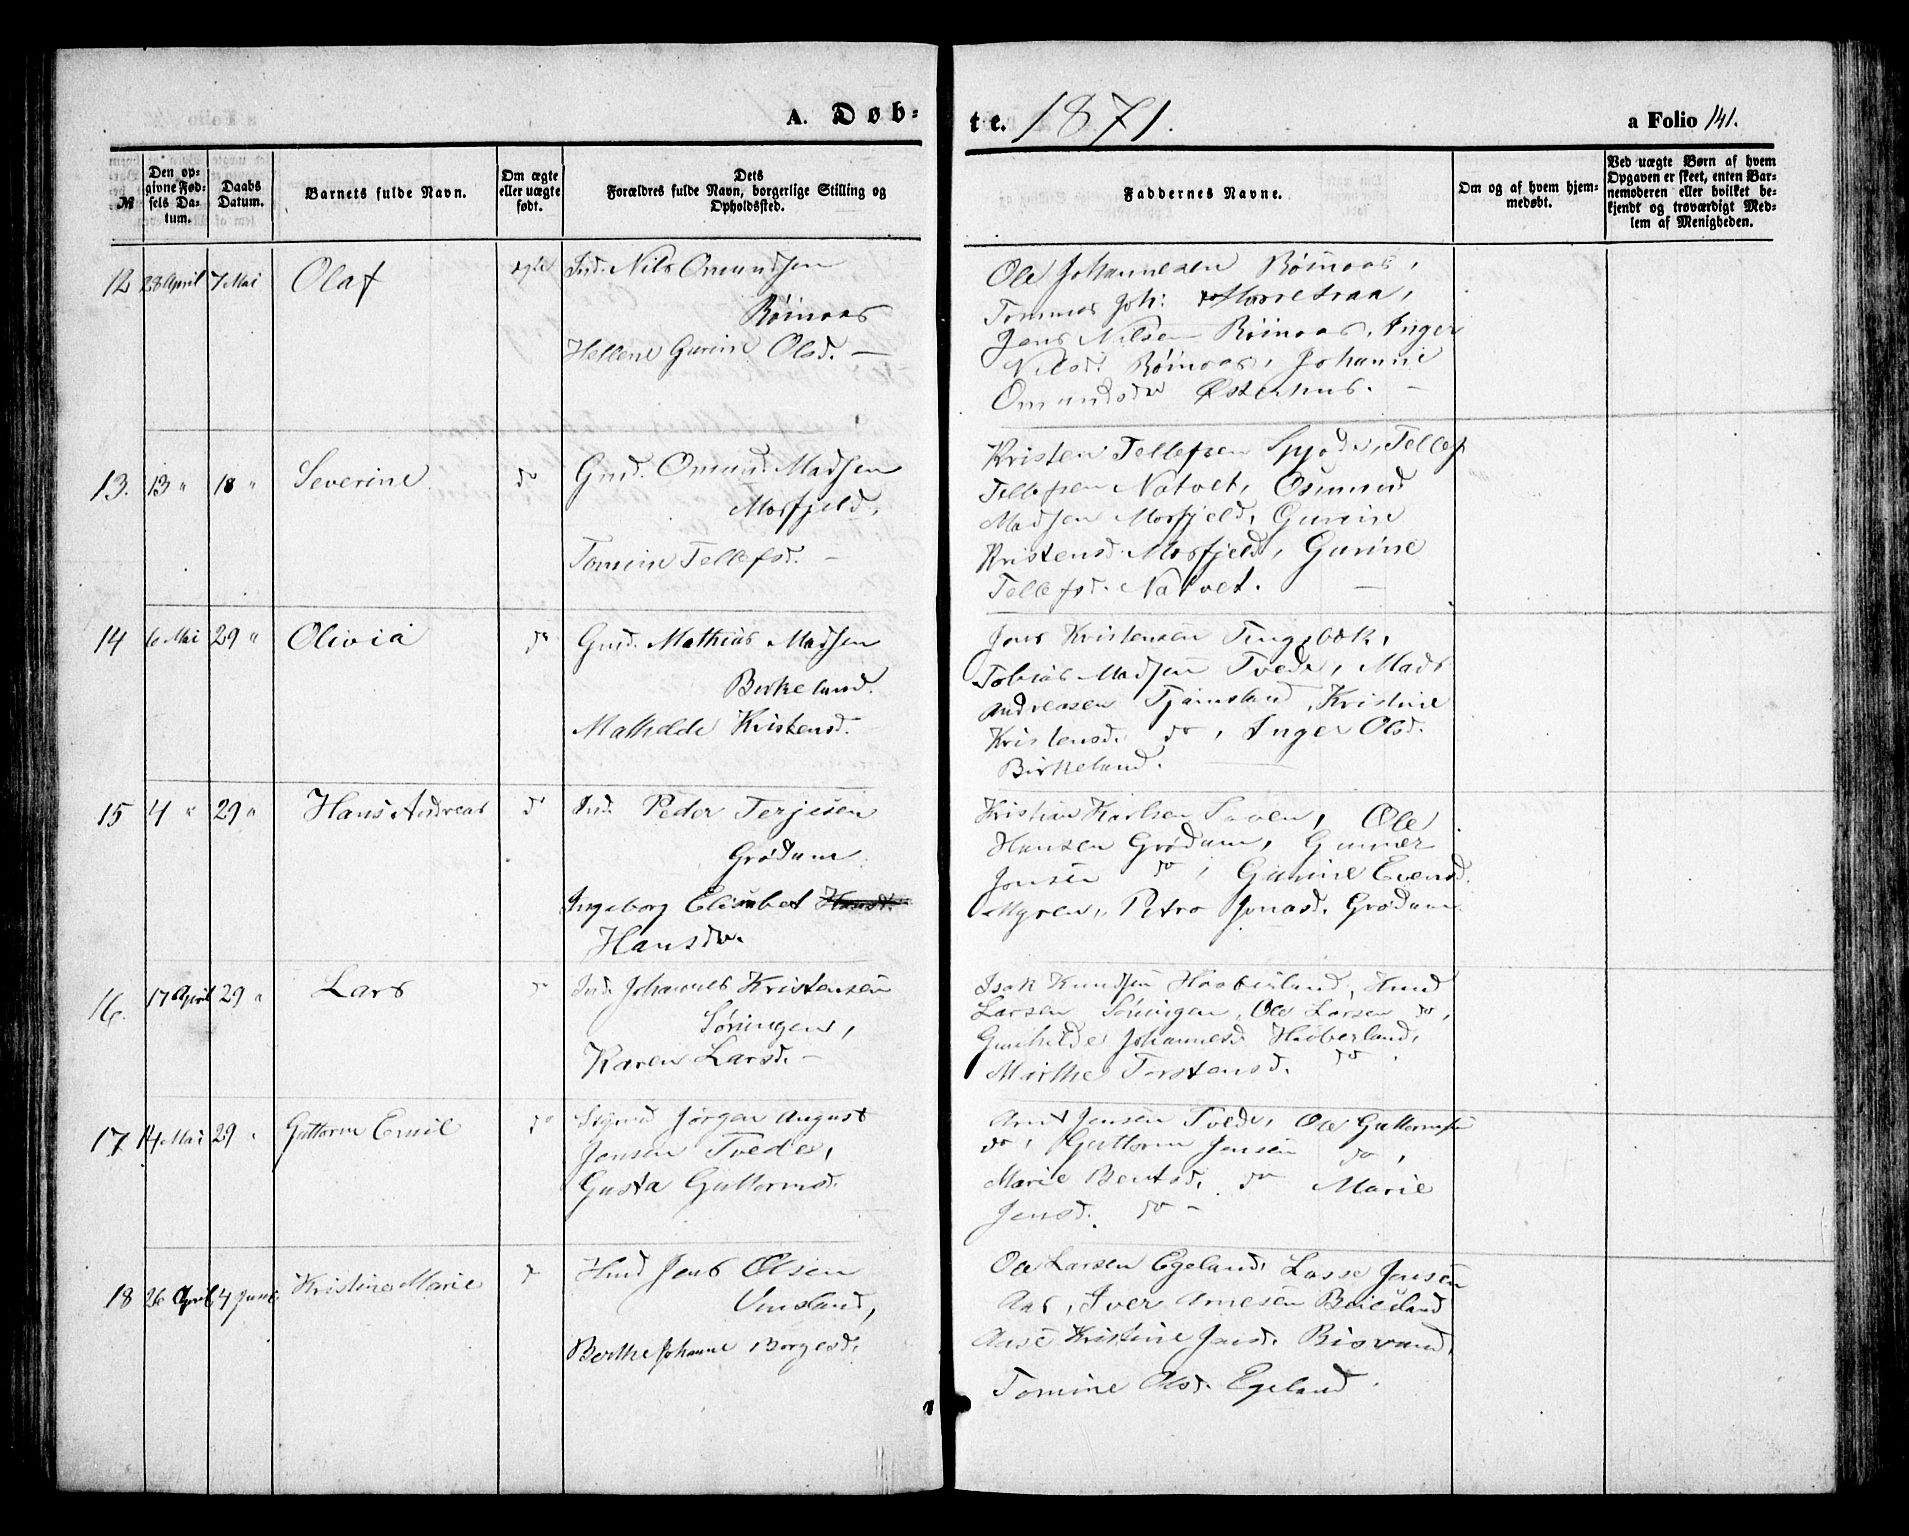 A. Døb-
te. 1871.
a Folio 141.
№
Den op-
givne Fød-
sels Da-
tum.
Daabs
Datum.
Barnets fulde Navn.
Om ægte
eller uægte
født.
Dets
Forældres fulde Navn, borgerlige Stilling og
Opholdssted.
Faddernes Navne.
Om og af hvem hjem-
medøbt.
Ved uægte Børn af hvem
Opgaven er skeet, enten Bar-
nemoderen eller hvilket be-
kjendt og troværdigt Med-
lem af Menigheden.
12 28 April 7 Mai Olaf ægte Ind. Nils Omundsen
Røinaas
Hellene Gurine Olsd. —
Ole Johannesen Røinaas,
Tommas Joh:
Jens Nilsen Røinaas, Inger
Nilsd. Røinaas, Johanne
Omundsdr Østerhus. —
13. 13 " 18 " Severine do Gmd. Omund Madsen
Mosfjeld,
Tomine Tellefsd. —
Kristen Tellefsen, Tellef
Tellefsen Natvet, Osmund
Madsen Mosfjeld, Gurine
Kristensd. Mosfjeld, Gurine
Tellefsd. Natvet. —
14 6 Mai 29 " Olivia do Gmd. Mathias Madsen
Birkeland.
Mathilde Kristensd. —
Jens Kristensen Tingsbæk,
Tobias Madsen Tvede, Mads
Andreasen Tjømsland, Kristine
Kristensd. do, Inger Olsd.
Birkeland. —
15 4 " 29 " Hans Andreas do Ind. Peder Terjesen
Grødum
Ingeborg Elisabet Hansd.
Hansdr.
Kristian Karlsen, Ole
Hansen Grødum, Gunner
Jonsen do, Gurine Evensd.
Myren, Petra Jonasd. Grødum
16. 17 April 29 " Lars do Ind. Johannes Kristensen
Søningen,
Karen Larsd. —
Isak Knudsen Haaberland, Knud
Larsen Søningen, Ole Larsen do,
Gunhilde Johannesd. Haaberland,
Marthe Torstensd. do.
17 14 Mai 29 " Guttorm Emil do Jørgen August
Jensen Tvede,
Gusta Guttormsd.
Arnt Jensen Tvede, Ole Guttormsen
do, Guttorm Jensen do,
Marie Bentsd. do Marie
Jensd. do —
18 26 April 4 Juni Kristine Marie do Hmd Jens Olsen
Vinsland,
Berthe Johanne Borgesd.
Ole Larsen Egeland, Lasse Jensen
Aas, Iver Arnesen Beieland
Aase Kristine Jensd. Bisvand,
Tomine Olsd. Egeland.